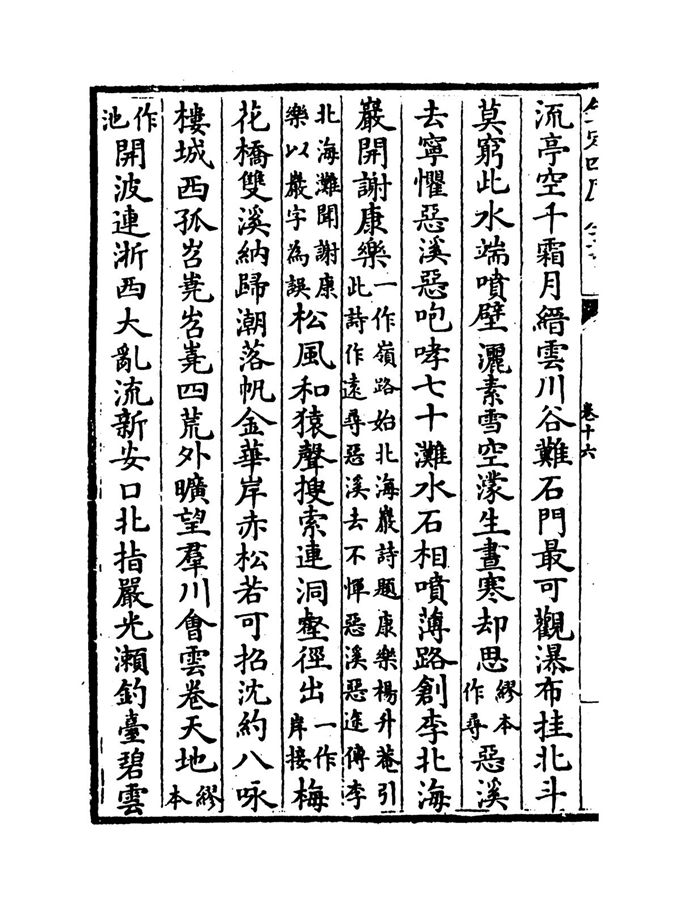 卷十六
流亭空千霜月縉雲川谷難石門最可觀瀑布挂北斗
莫窮此水端噴壁灑素雪空濛生晝寒却思繆本作尋惡溪
去寧懼惡溪惡咆哮七十灘水石相噴薄路創李北海
巖開謝康樂一作嶺路始北海巖詩題康樂楊升菴引此詩作遠尋惡溪去不憚惡溪惡途傳李
北海灘聞謝康樂以巖字為誤松風和猿聲搜索連洞壑徑出一作岸接梅
花橋雙溪納歸潮落帆金華岸赤松若可招沈約八咏
樓城西孤岧嶤岧嶤四荒外曠望羣川會雲卷天地繆本
作池開波連浙西大亂流新安口北指嚴光瀨釣臺碧雲